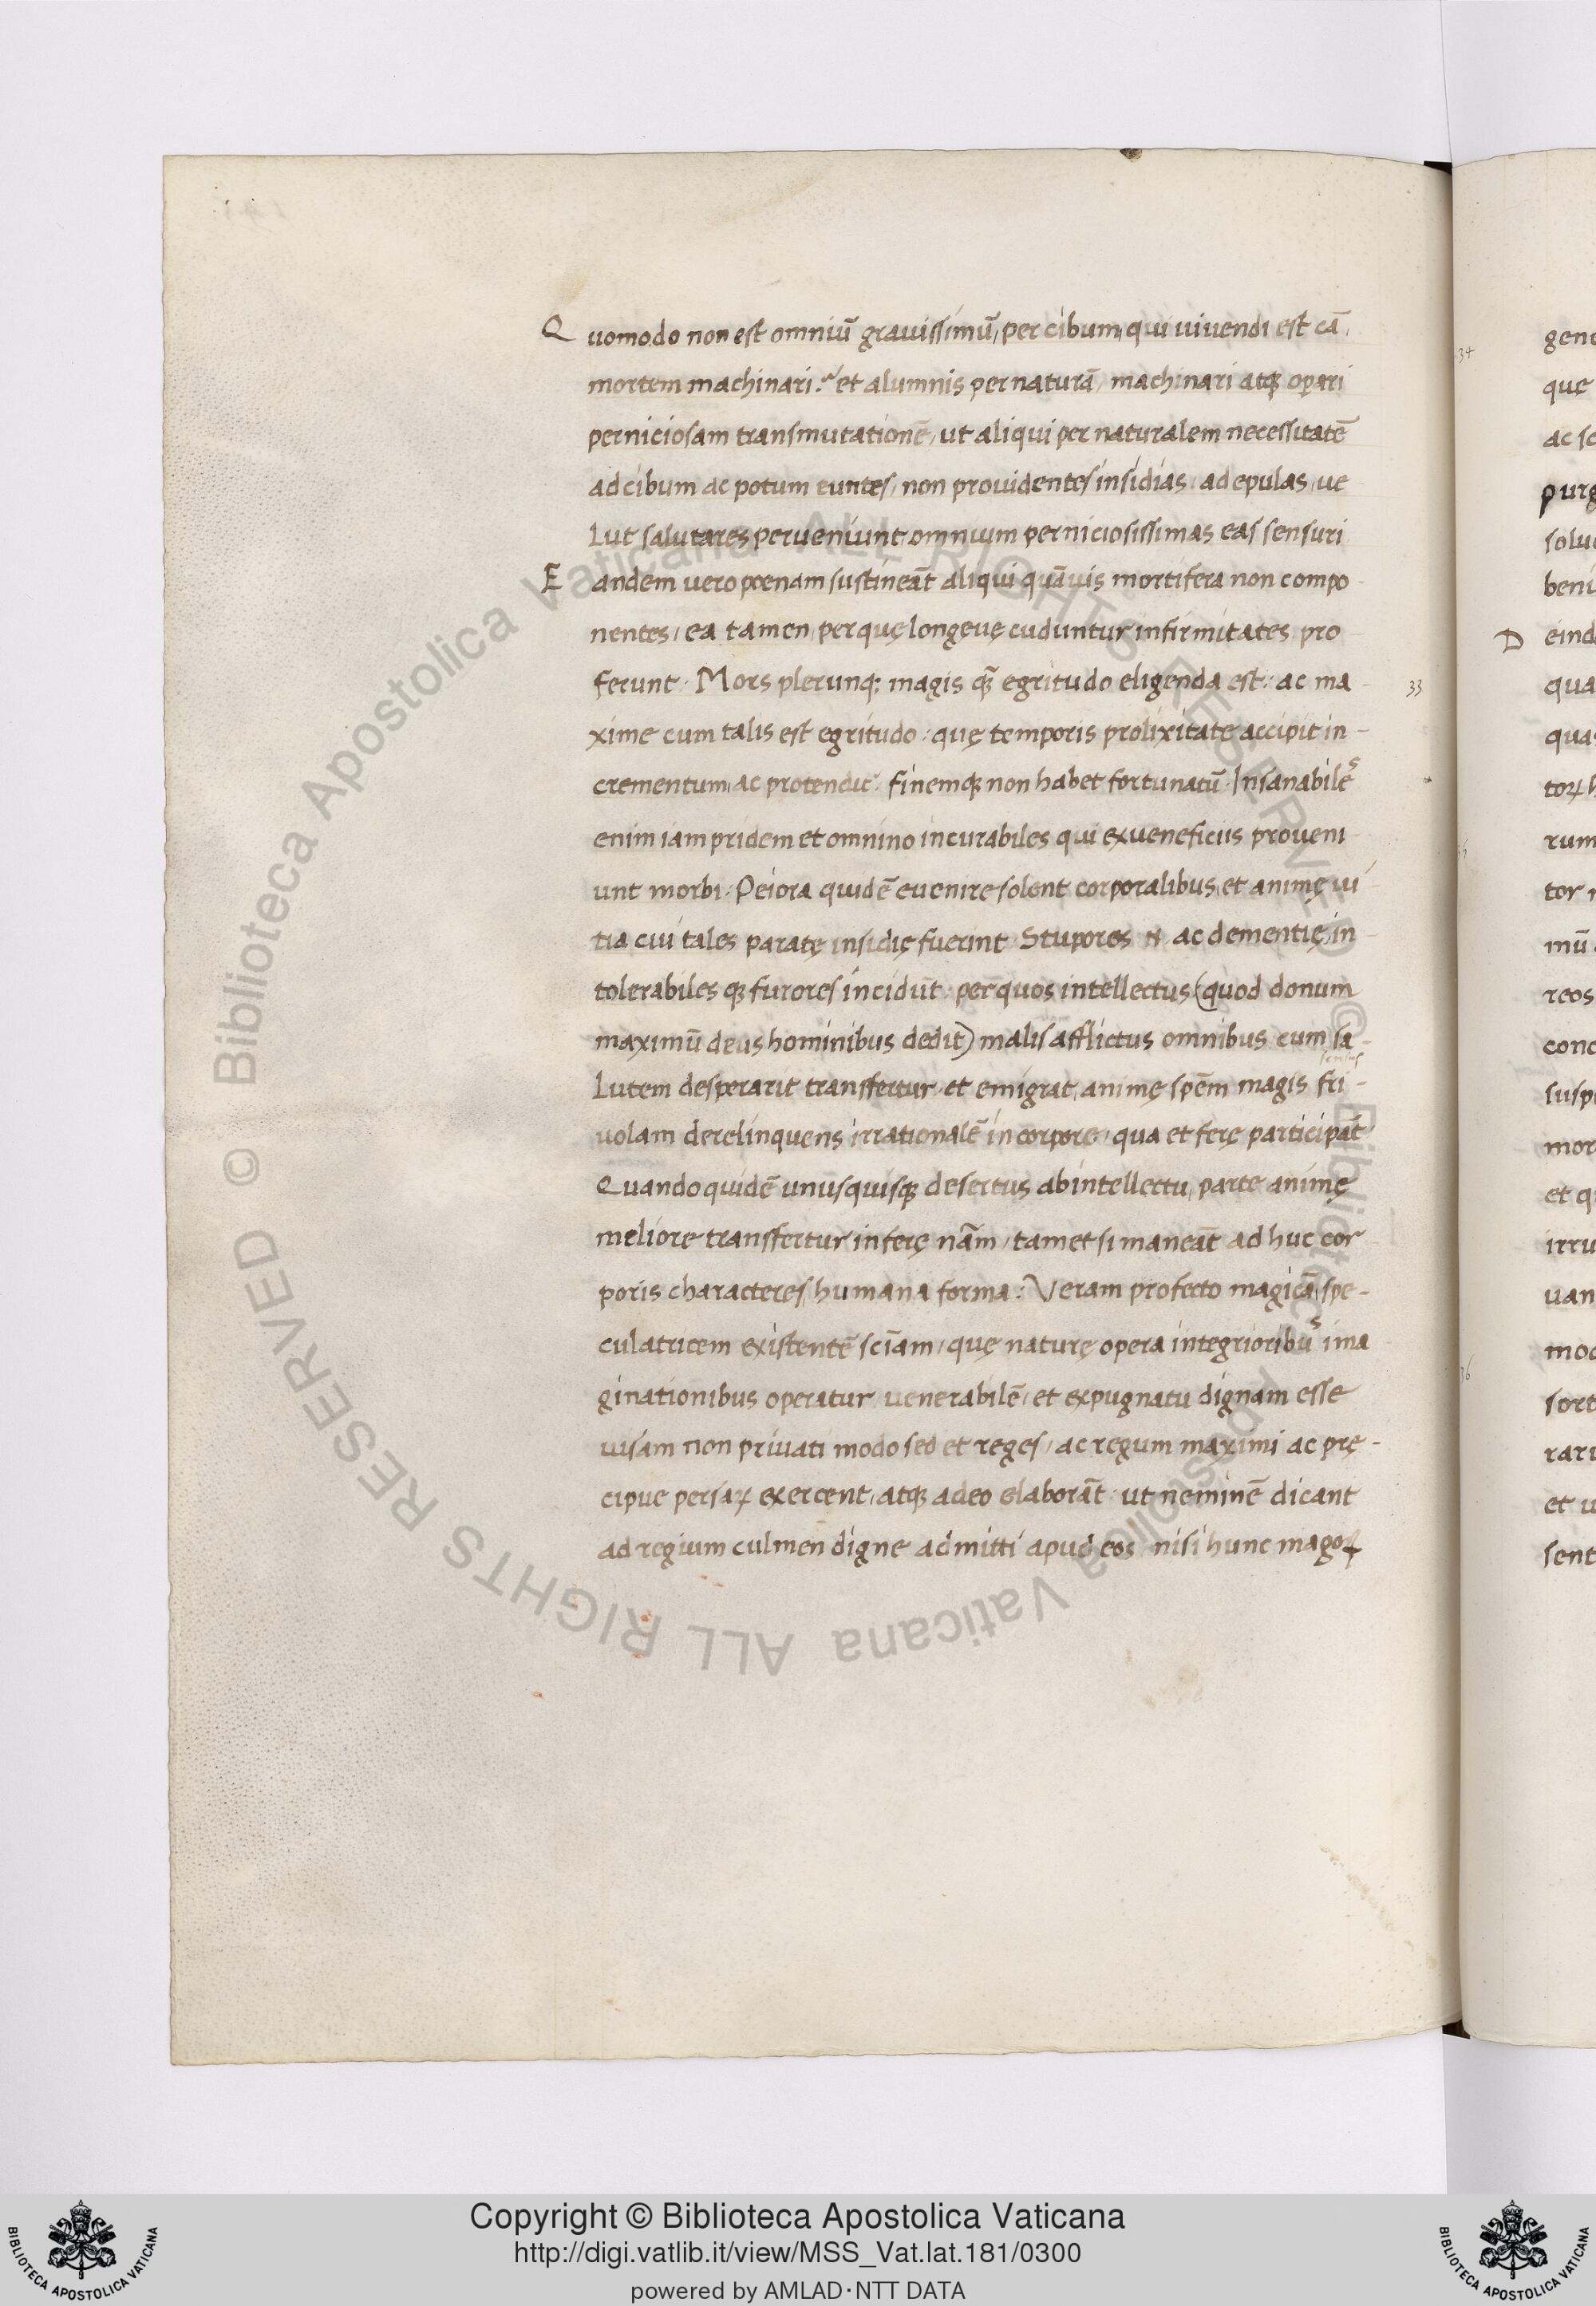 Quomodo non est omniū grauissimū, per cibum, qui uiuendi est cā,
mortem machinari? et alumnis per naturā, machinari atq; operari
perniciosam transmutationē, ut aliqui per naturalem necessitatē
ad cibum ac potum euntes, non prouidentes insidias, ad epulas, ue
lut salutares perueniunt omnium perniciosissimas eas sensuri
Eandem uero poenam sustineāt aliqui quāuis mortifera non compo
nentes, ea tamen, per quę longeuę cuduntur infirmitates pro
ferunt. Mors plerunq; magis q̄ egritudo eligenda est: ac ma
33
xime cum talis est egritudo: quę temporis prolixitate accipit in-
crementum, ac protendit: finemq; non habet fortunatū. Insanabiles
enim iam pridem et omnino incurabiles qui ex ueneficiis proueni
unt morbi. Peiora quidē euenire solent corporalibus, et animę ui
tia cui tales paratę insidię fuerint. Stupores n. ac dementię, in
tolerabiles q; furores incidūt: per quos intellectus (quod donum
maximū deus hominibus dedit) malis afflictus omnibus cum sa-
sensus
lutem desperarit transffertur et emigrat, animę spēm magis fri-
uolam derelinquens irrationalē in corpore, qua et ferę participāt
Quando quidē unusquisq; desertus ab intellectu, parte animę
meliore transffertur in ferę nām, tametsi maneāt ad huc cor
poris characteres, humana forma: Veram profecto magicā, spe-
culatricem existentē sciam, quę naturę opera integrioribus ima
ginationibus operatur, uenerabilē, et expugnatu dignam esse
uisam non priuati modo sed et reges, ac regum maximi ac prę-
cipue persaꝝ exercent, atq; adeo elaborāt: ut neminē dicant
ad regium culmen digne admitti apud eos nisi hunc magoꝝ
34
35
36
gene
que
ac sc
purg
solu
beni
Deinde
qua
quas
toꝝ h
rum
tor
mū
reos
conc
susp
mor
et q
irru
uan
moc
sort
rari
et u
sent
© Biblioteca Apostolica Vaticana ALL RIGHTS RESERVED © Biblioteca Apostolica Vaticana ALL RIGHTS RESERVED
Copyright © Biblioteca Apostolica Vaticana
http://digi.vatlib.it/view/MSS_Vat.lat.181/0300
powered by AMLAD·NTT DATA
BIBLIOTECA APOSTOLICA VATICANA
BIBLIOTECA APOSTOLICA VATICANA